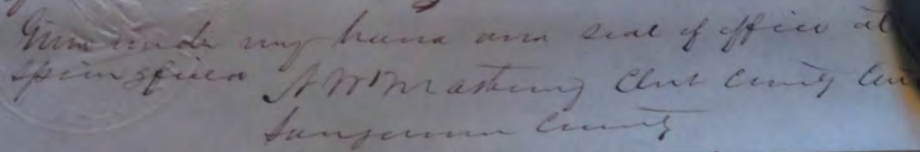 Given under my hand and seal of office at
Springfield N W Matheny Clerk County
Sangamon County